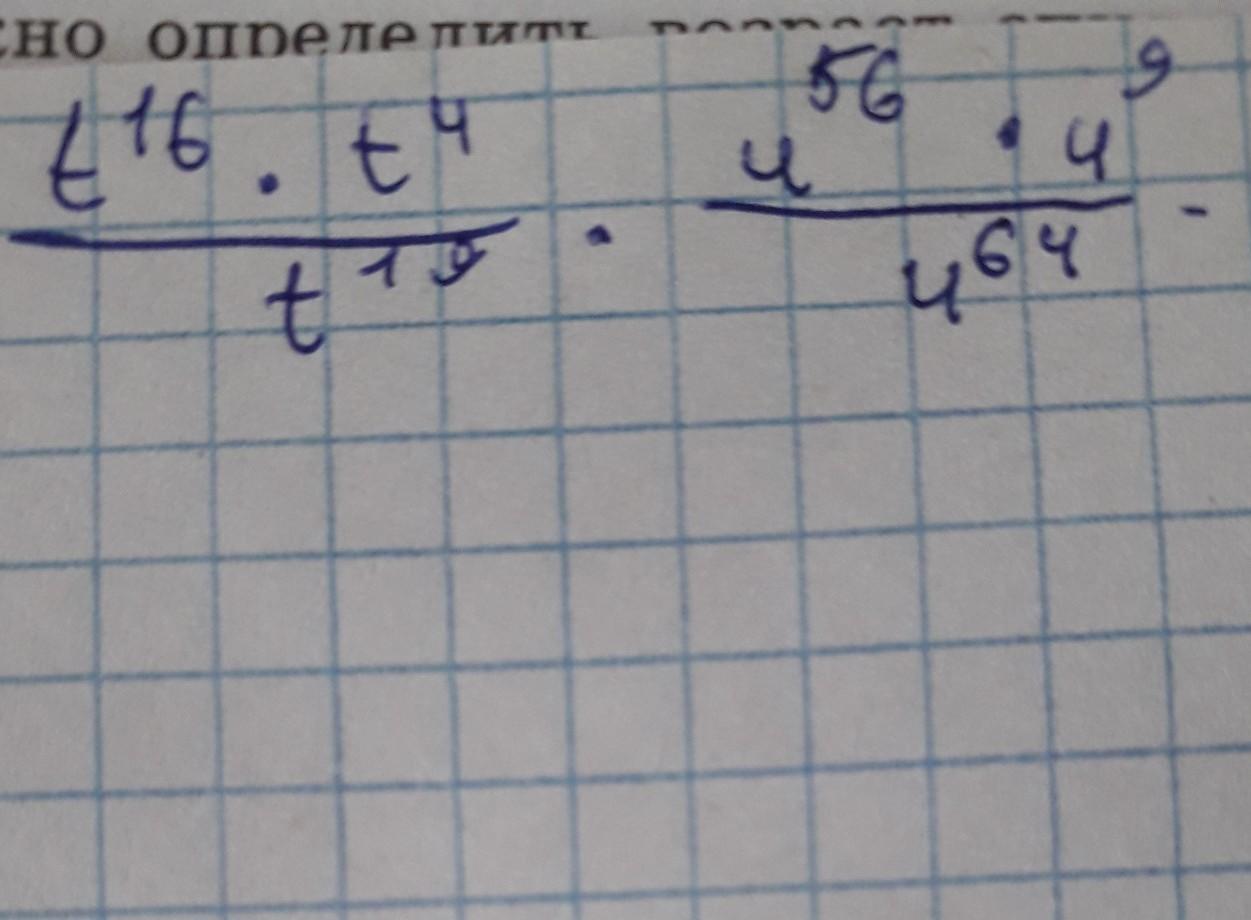 сно определить
t¹⁶ · t⁴ / t¹⁹ · u⁵⁶ · u⁹ / u⁶⁴ -